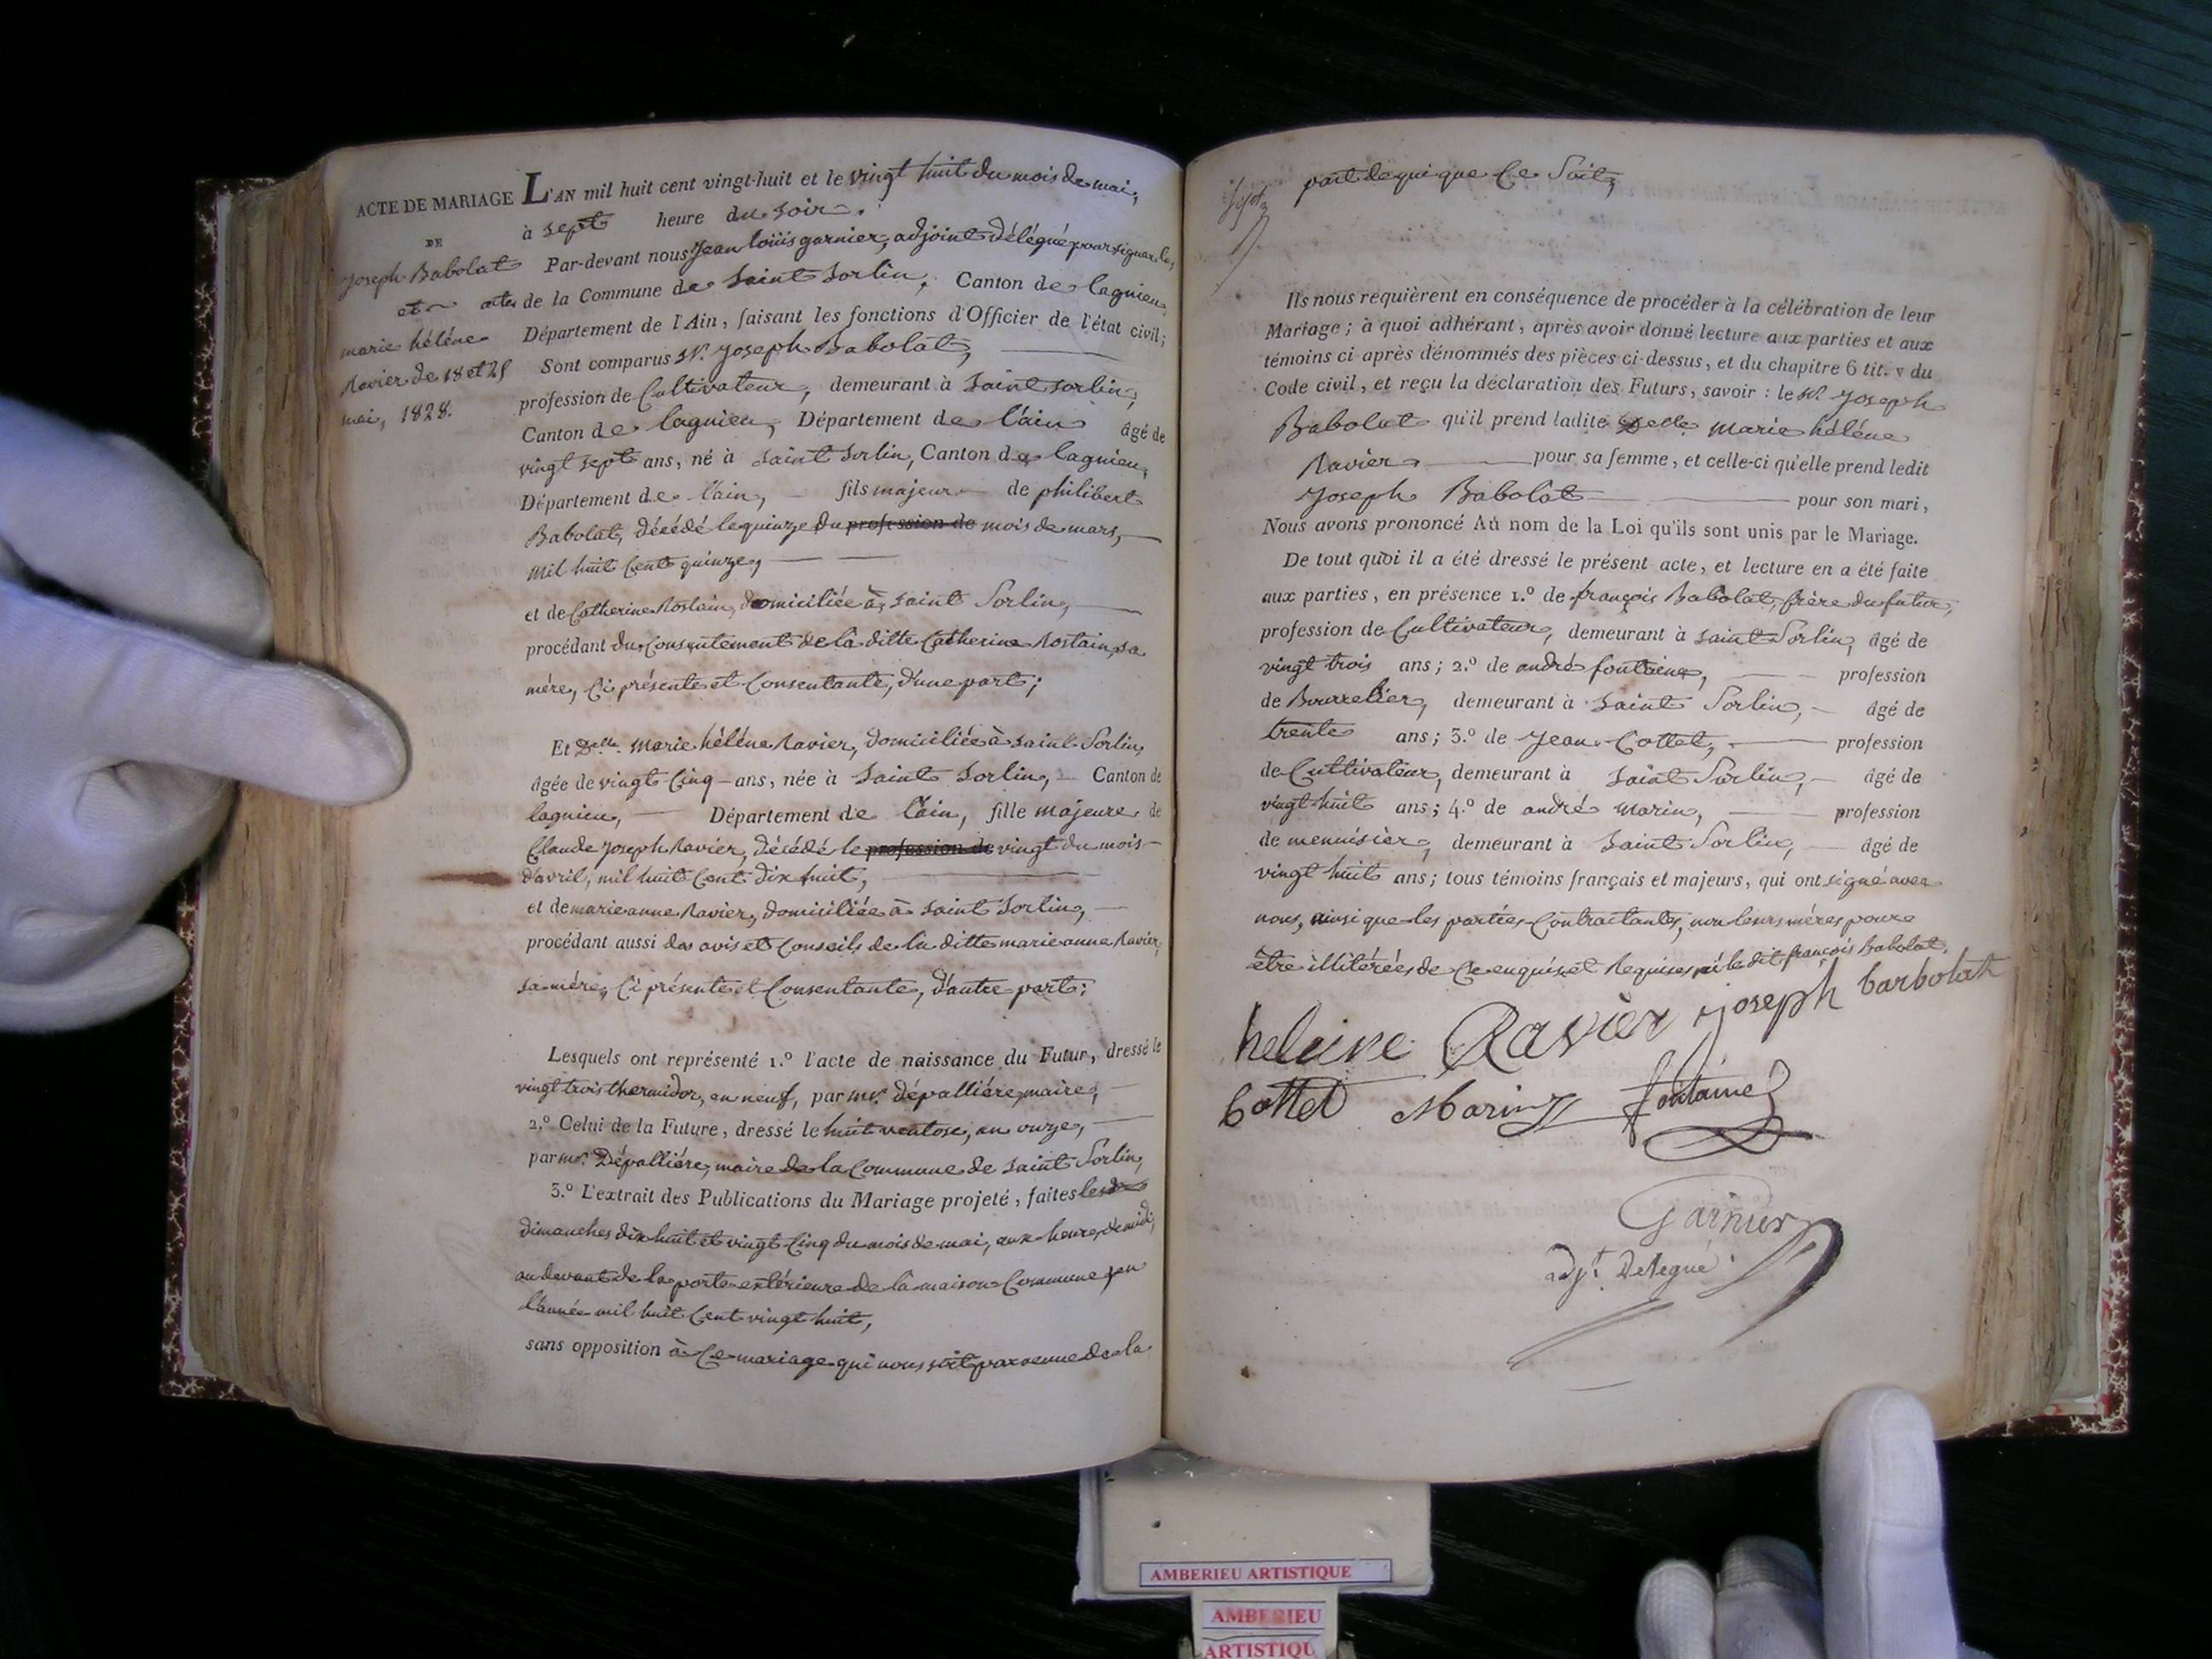 ACTE DE MARIAGE
DE
Joseph Babolat
et
marie hélène
Ravier de 18 et 25
mai, 1828.
L'AN mil huit cent vingt-huit et le vingt huit du mois de mai,
à sept heure du soir.
Par-devant nous Jean loüis garnier, adjoint délégué pour signer les
actes de la Commune de Saint Sorlin, Canton de lagnieu,
Département de l'Ain, faisant les fonctions d'Officier de l'état civil;
Sont comparus Sr. Joseph Babolat,
profession de Cultivateur, demeurant à Saint sorlin,
Canton de lagnieu, Département de l'ain âgé de
vingt sept ans, né à Saint Sorlin, Canton de lagnieu,
Département de l'ain, fils majeur de philibert
Babolat, décédé le quinze du profession de mois de mars,
mil huit Cent quinze,
et de Catherine Rostain, domiciliée à Saint Sorlin,
procédant du Consentement de la ditte Catherine Rostain, sa
mère, Ci présente et Consentante, d'une part;
Et Delle. Marie hélène Ravier, domiciliée à Saint Sorlin,
âgée de vingt Cinq ans, née à Saint Sorlin, Canton de
lagnieu, Département de l'ain, fille majeure de
Claude Joseph Ravier, décédé le profession de vingt du mois
d'avril, mil huit Cent dix huit,
et de marie anne Ravier, domiciliée à Saint Sorlin,
procédant aussi des avis et Conseils de la ditte marie anne Ravier,
sa mère, Ci présente et Consentante, d'autre part;
Lesquels ont représenté 1.° l'acte de naissance du Futur, dressé le
vingt trois thermidor, an neuf, par mr. dépallière, maire,
2.° Celui de la Future, dressé le huit ventose, an onze,
par mr. Dépallière, maire de la Commune de Saint Sorlin,
3.° L'extrait des Publications du Mariage projeté, faites les
dimanches dix huit et vingt Cinq du mois de mai, aux heures de midi,
au devant de la porte extérieure de la maison Commune, en
l'année mil huit Cent vingt huit,
sans opposition à Ce mariage qui nous soit parvenue de la
part de qui que Ce Soit,
Ils nous requièrent en conséquence de procéder à la célébration de leur
Mariage; à quoi adhérant, après avoir donné lecture aux parties et aux
témoins ci après dénommés des pièces ci-dessus, et du chapitre 6 tit. v du
Code civil, et reçu la déclaration des Futurs, savoir : le Sr. Joseph
Babolat qu'il prend ladite Delle marie hélène
Ravier pour sa femme, et celle-ci qu'elle prend ledit
Joseph Babolat pour son mari,
Nous avons prononcé Au nom de la Loi qu'ils sont unis par le Mariage.
De tout quoi il a été dressé le présent acte, et lecture en a été faite
aux parties, en présence 1.° de françois Babolat, frère du futur,
profession de Cultivateur, demeurant à Saint Sorlin, âgé de
vingt trois ans; 2.° de andré fontaine, profession
de Bourrelier, demeurant à Saint Sorlin, âgé de
trente ans; 3.° de Jean Cottet, profession
de Cultivateur, demeurant à Saint Sorlin, âgé de
vingt huit ans; 4.° de andré Marin, profession
de menuisier, demeurant à Saint Sorlin, âgé de
vingt huit ans; tous témoins français et majeurs, qui ont signé avec
nous, ainsi que les parties Contractantes, non leurs mères pour
être illitérées de Ce enquis et Requises ni le dit françois Babolat.
heleine Ravier joseph barbolat
Cottet Marin fontaine
Garnier
adjt. Delegué
AMBERIEU ARTISTIQUE
AMBERIEU
ARTISTIQU